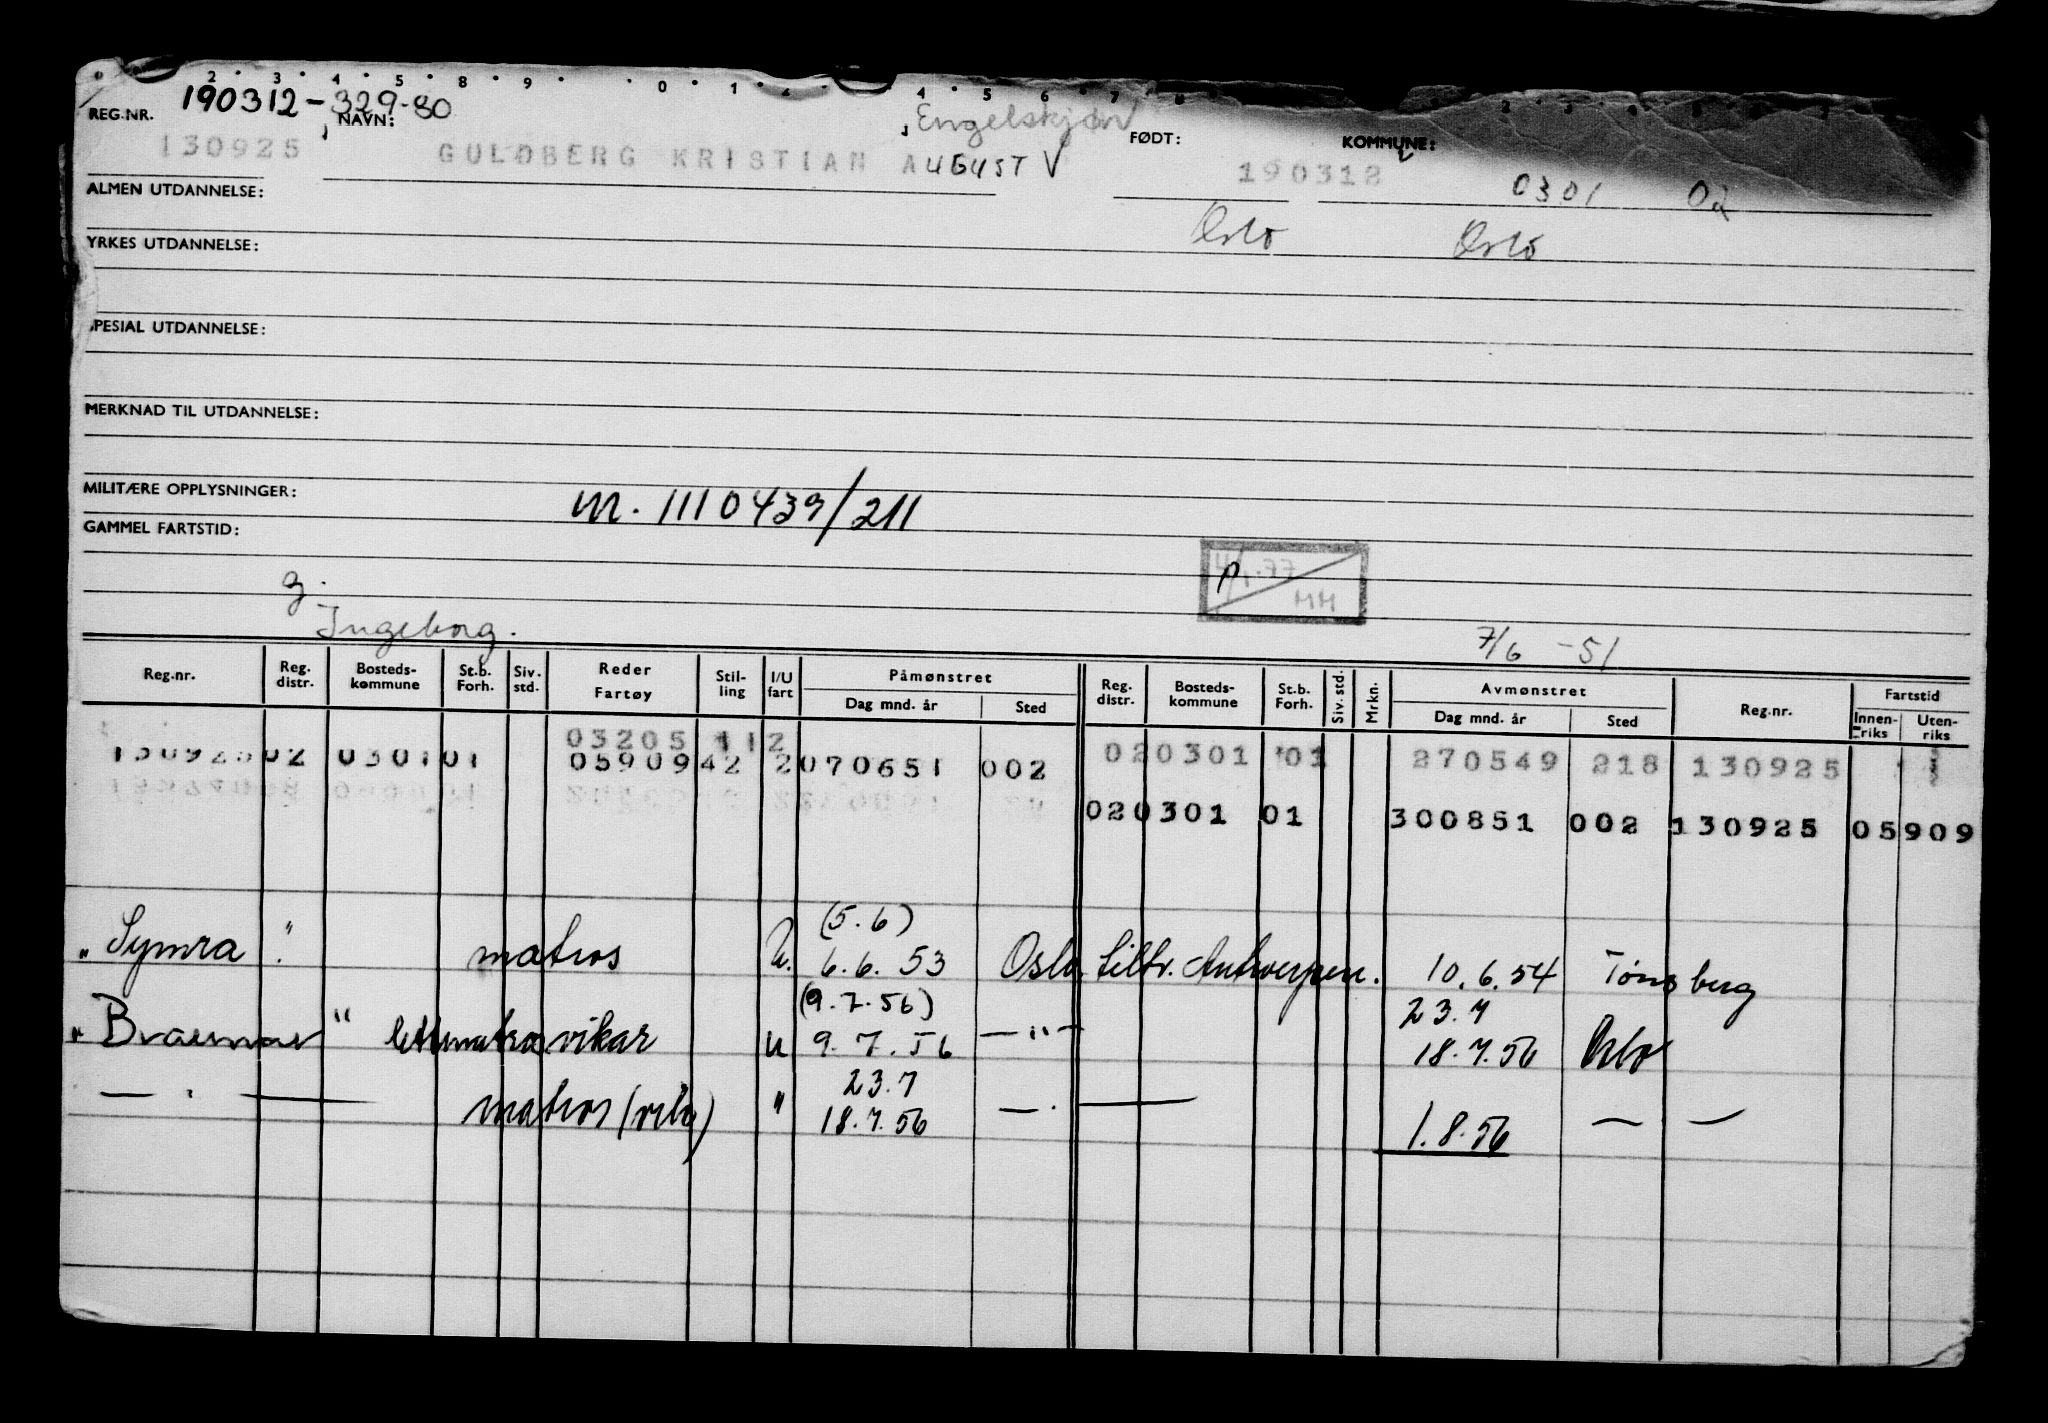 190312-329-80
REG.NR. NAVN: FØDT: KOMMUNE:
130925 GULDBERG KRISTIAN AUGUST V 190312 0301 02
ALMEN UTDANNELSE: Oslo Oslo
YRKES UTDANNELSE:
SPESIAL UTDANNELSE:
MERKNAD TIL UTDANNELSE:
MILITÆRE OPPLYSNINGER: M. 1110439/211
GAMMEL FARTSTID:
g. Ingeborg.
MM
7/6 -51
Reg.nr. Reg. distr. Bosteds-kommune St.b. Forh. Siv. std. Reder Fartøy Stil-ling I/U fart Påmønstret Dag mnd. år Sted Reg. distr. Bosteds-kommune St.b. Forh. Siv. std. Mrkn. Avmønstret Dag mnd. år Sted Reg.nr. Fartstid Innen-riks Uten-riks
03205 112 020301 01 270549 218 130925
130925 02 0301 01 05909 42 2 070651 002
020301 01 300851 002 130925 05909
(5.6)
"Symra" matros U. 6.6.53 Oslo, tiltr. Antwerpen. 10.6.54 Tønsberg
(9.7.56) 23.7
"Braemar" lettmatros vikar U 9.7.56 — " — 18.7.56 Oslo
23.7
— " — matros " 18.7.56 — " — 1.8.56 — " —